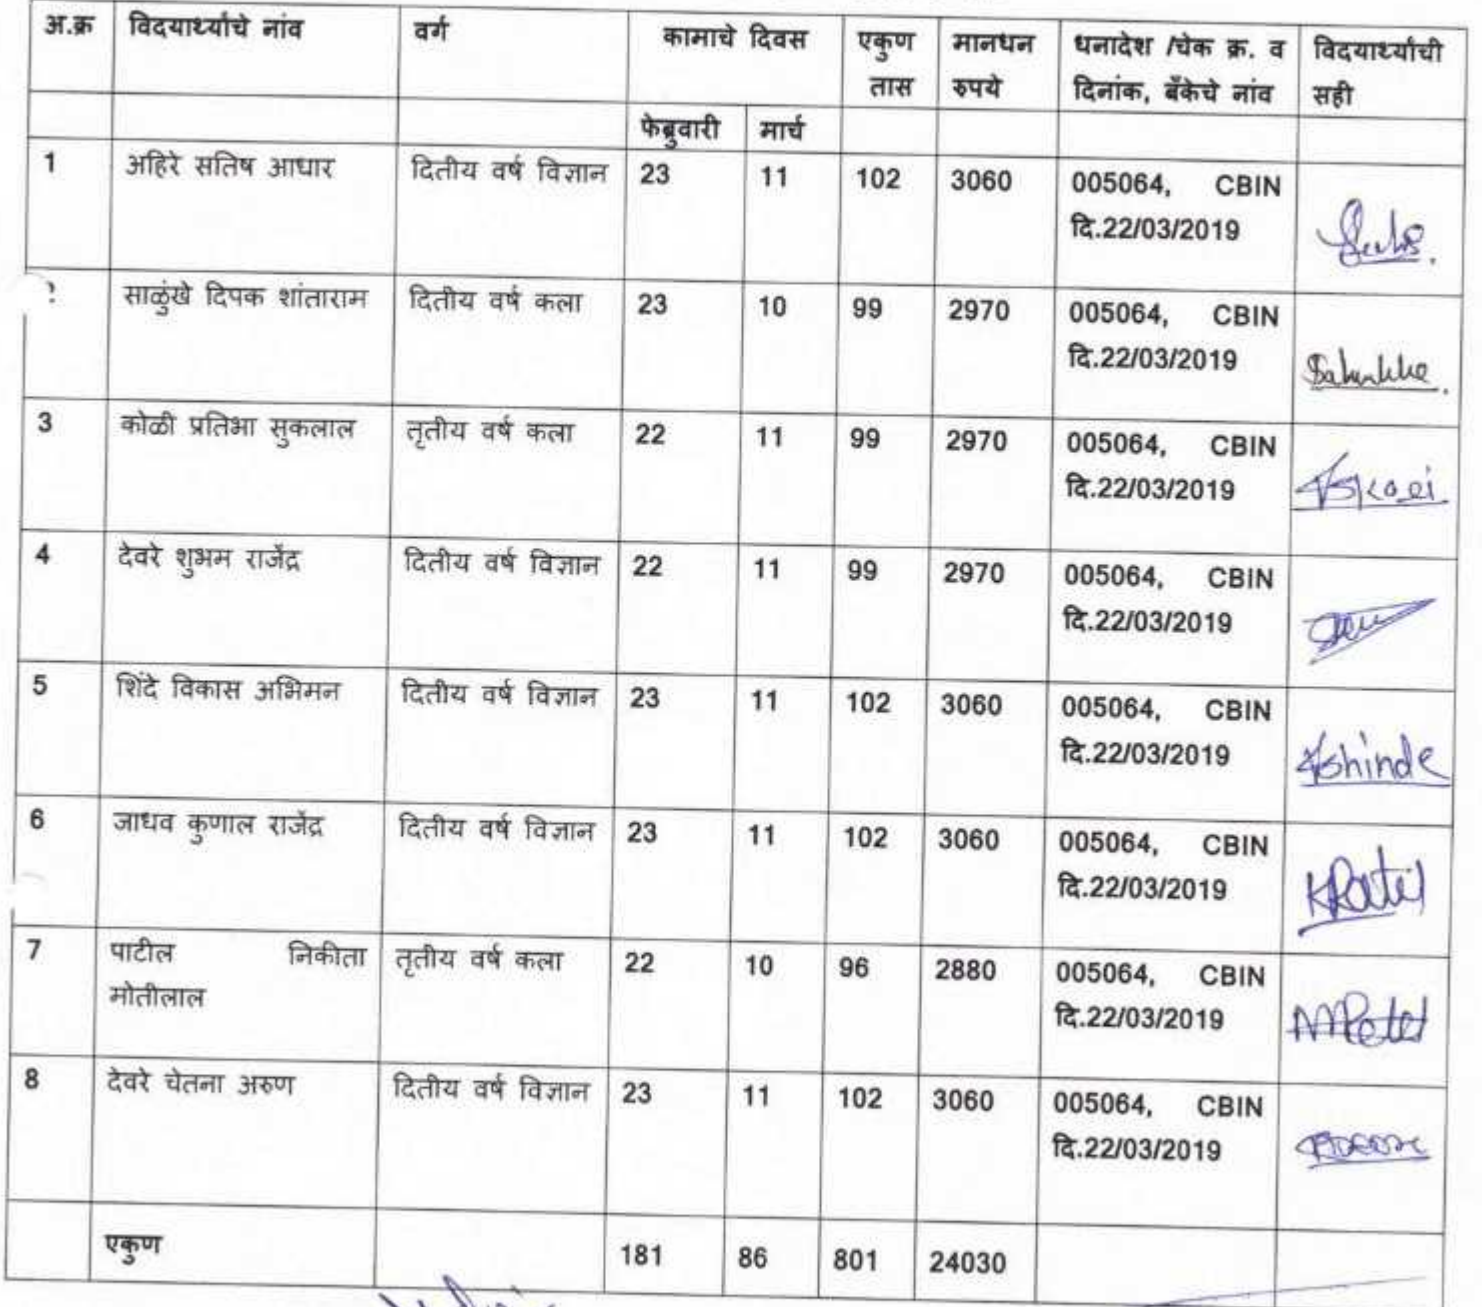 अ.क्र विदयार्थ्यांचे नांव वर्ग कामाचे दिवस एकुण तास मानधन रुपये धनादेश /चेक क्र. व दिनांक, बँकेचे नांव विदयार्थ्यांची सही
फेब्रुवारी मार्च
1 अहिरे सतिष आधार दितीय वर्ष विज्ञान 23 11 102 3060 005064, CBIN
दि.22/03/2019
साळुंखे दिपक शांताराम दितीय वर्ष कला 23 10 99 2970 005064, CBIN
दि.22/03/2019 Salunkhe
3 कोळी प्रतिभा सुकलाल तृतीय वर्ष कला 22 11 99 2970 005064, CBIN
दि.22/03/2019
4 देवरे शुभम राजेंद्र दितीय वर्ष विज्ञान 22 11 99 2970 005064, CBIN
दि.22/03/2019
5 शिंदे विकास अभिमन दितीय वर्ष विज्ञान 23 11 102 3060 005064, CBIN
दि.22/03/2019 Vshinde
6 जाधव कुणाल राजेंद्र दितीय वर्ष विज्ञान 23 11 102 3060 005064, CBIN
दि.22/03/2019 KPatil
7 पाटील निकीता तृतीय वर्ष कला 22 10 96 2880 005064, CBIN
मोतीलाल दि.22/03/2019
8 देवरे चेतना अरुण दितीय वर्ष विज्ञान 23 11 102 3060 005064, CBIN
दि.22/03/2019
एकुण 181 86 801 24030